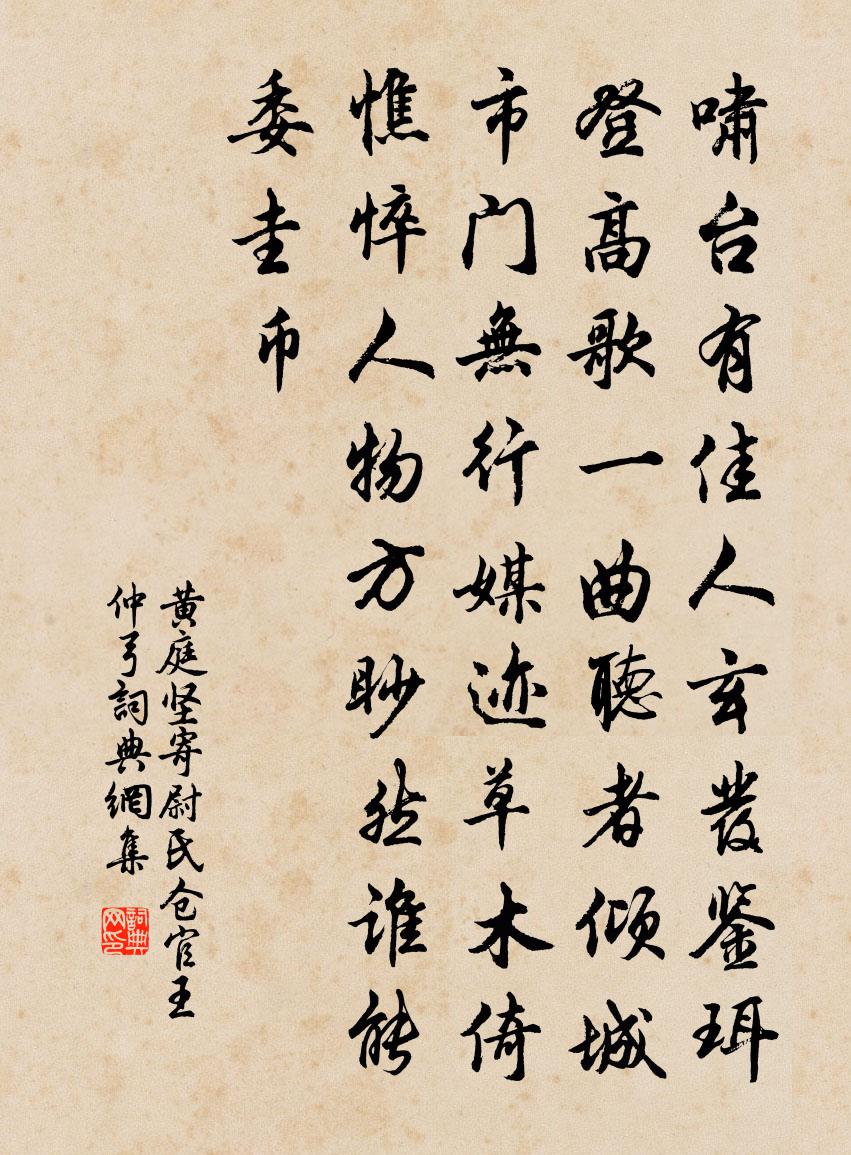 啸台有佳人玄發鉴珥
登高歌一曲聽者倾城
市門無行媒迹草木倚
憔悴人物方眇然谁能
委圭币
黄庭坚寄尉氏仓官王
仲弓詞典網集
詞典网印